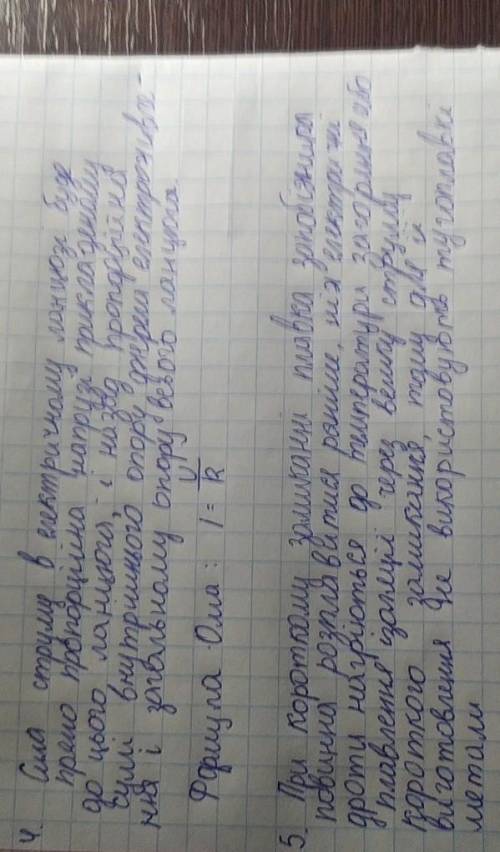 4. Сила струму в електричному ланцюзі буде
прямо пропорційна напрузі прикладеному
до цього ланцюга, і назад пропорційна
сумі внутрішнього опору джерел електроживле-
ння і загальному опору всього ланцюга
Формула Ома: I = U/R
5. При короткому замиканні плавка запобіжника
повинна розплавитися раніше, ніж електричні
дроти нагріються до температури загорання або
плавлення ізоляції через велику струму
короткого замикання, тому для її
виготовлення не використовують тугоплавкі
метали